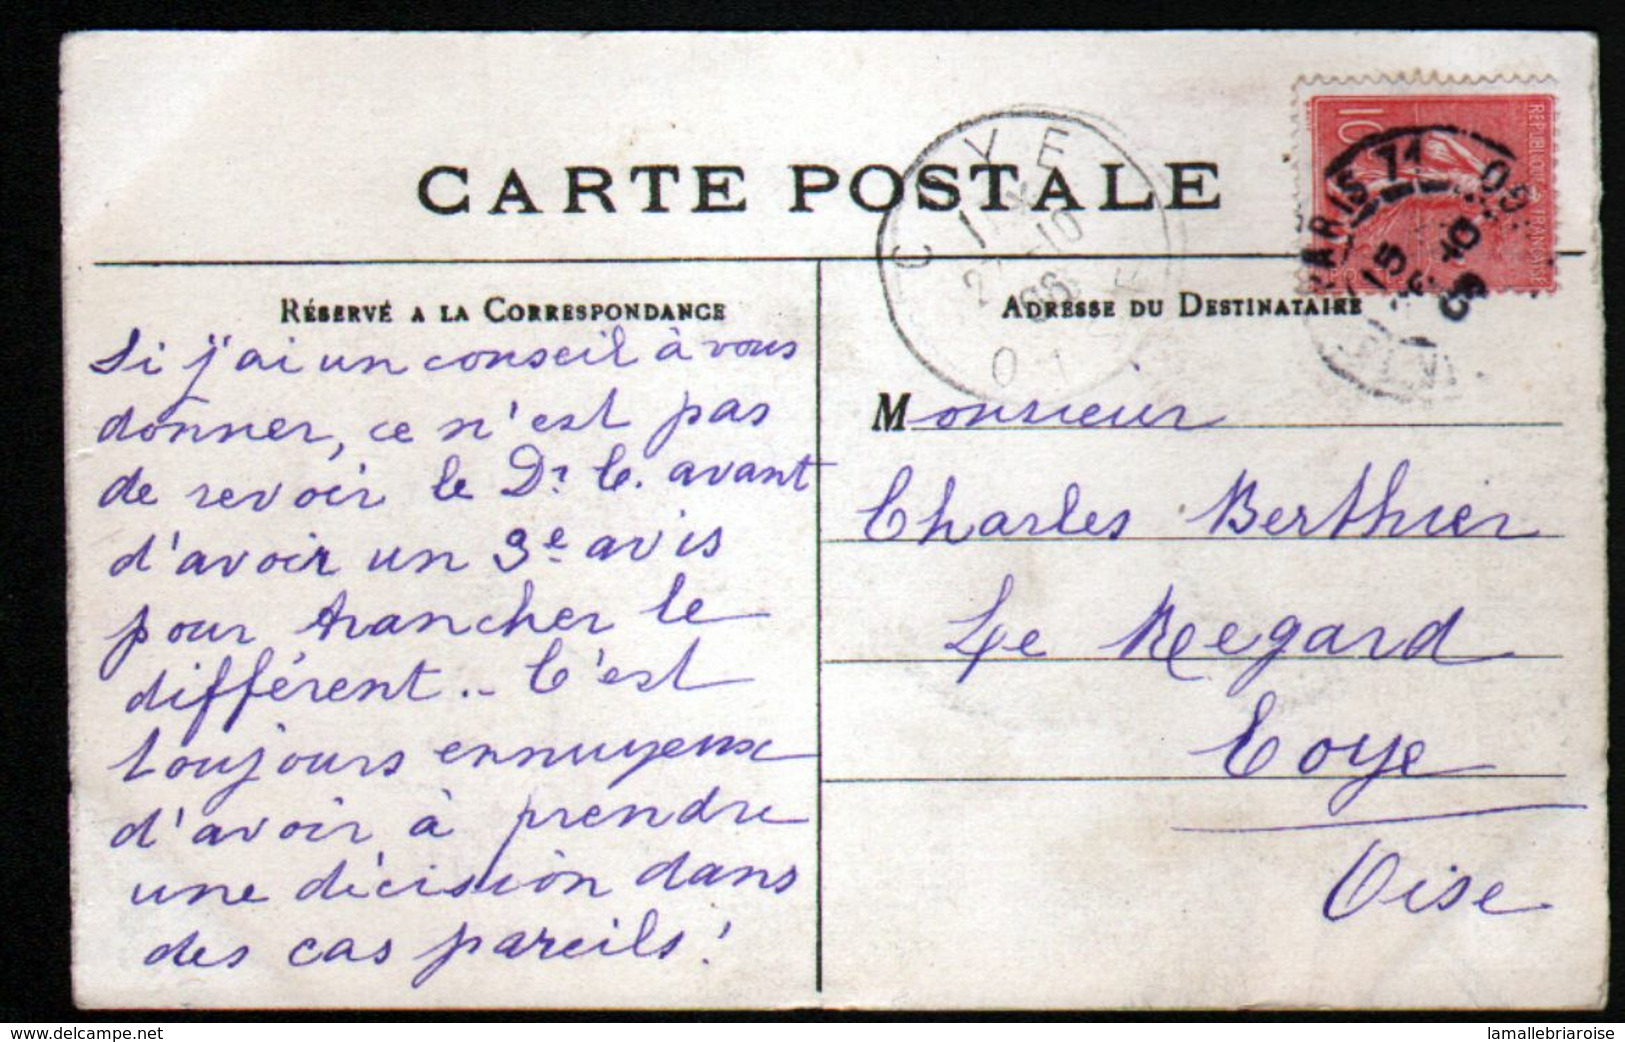 CARTE POSTALE
RÉSERVÉ A LA CORRESPONDANCE
Si j'ai un conseil à vous
donner, ce n'est pas
de revoir le Dr. C. avant
d'avoir un 3e avis
pour trancher le
différent.. C'est
toujours ennuyeux
d'avoir à prendre
une décision dans
des cas pareils!
ADRESSE DU DESTINATAIRE
Monsieur
Charles Berthier
Le Regard
Coye
Oise
COYE
OI
10
REPUBLIQUE FRANÇAISE
PARIS 71
delcampe.net
lamallebriaroise